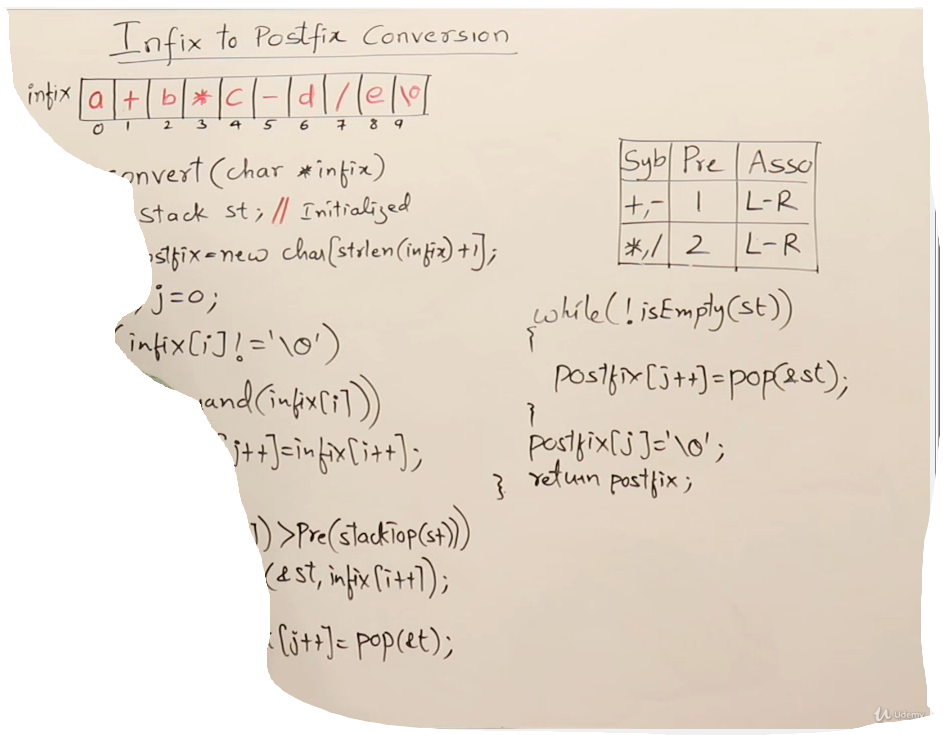 Infix to Postfix Conversion
infix a + b * c - d / e \0
0 1 2 3 4 5 6 7 8 9
onvert(char *infix)
stack st; // Initialized
ostfix=new char[strlen(infix)+1];
, j=0;
(infix[i]!='\0')
and(infix[i]))
[j++]=infix[i++];
])>Pre(stackTop(st)))
(&st,infix[i++]);
[j++]=pop(&t);
Syb Pre Asso
+,- 1 L-R
*,/ 2 L-R
while(!isEmpty(st))
{
postfix[j++]=pop(&st);
}
postfix[j]='\0';
return postfix;
}
Udemy